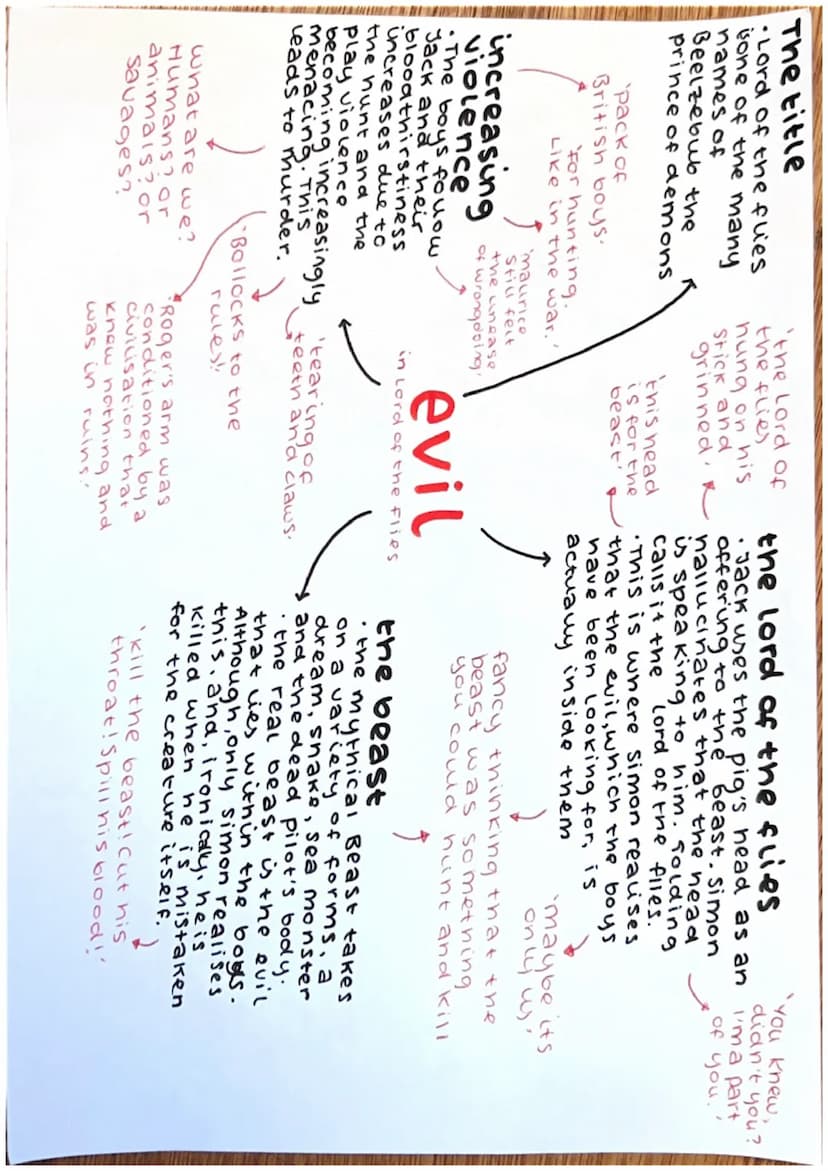 The title
· Lord of the flies
is one of the many
names of
Beelzebub the
prince of demons
increasing
violence
· The boys follow
Jack and their
bloodthirstiness
increases due to
the hunt and the
play violence
becoming increasingly
menacing. This
leads to murder.
'pack of
British boys'.
'for hunting.
Like in the war.'
'maurice
still felt
the unease
of wrongdoing'
'tearing of
teeth and claws.
'Bollocks to the
rules!'
'Roger's arm was
conditioned by a
civilisation that
knew nothing and
was in ruins.'
what are we?
Humans? or
animals? or
savages?
evil
in Lord of the flies
'the Lord of
the flies
hung on his
stick and
grinned'
'this head
is for the
beast'
the lord of the flies
· Jack uses the pig's head as an
offering to the beast. Simon
hallucinates that the head
is speaking to him. Golding
calls it the Lord of the flies.
· This is where Simon realises
that the evil, which the boys
have been looking for, is
actually inside them
'you knew,
didn't you?
I'm a part
of you.'
'maybe its
only us'
fancy thinking that the
beast was something
you could hunt and kill
the beast
· the mythical Beast takes
on a variety of forms, a
dream, snake, sea monster
and the dead pilot's body.
· the real beast is the evil
that lies within the boys.
Although, only simon realises
this. and, ironically, he is
killed when he is mistaken
for the creature itself.
'kill the beast! Cut his
throat! Spill his blood!'